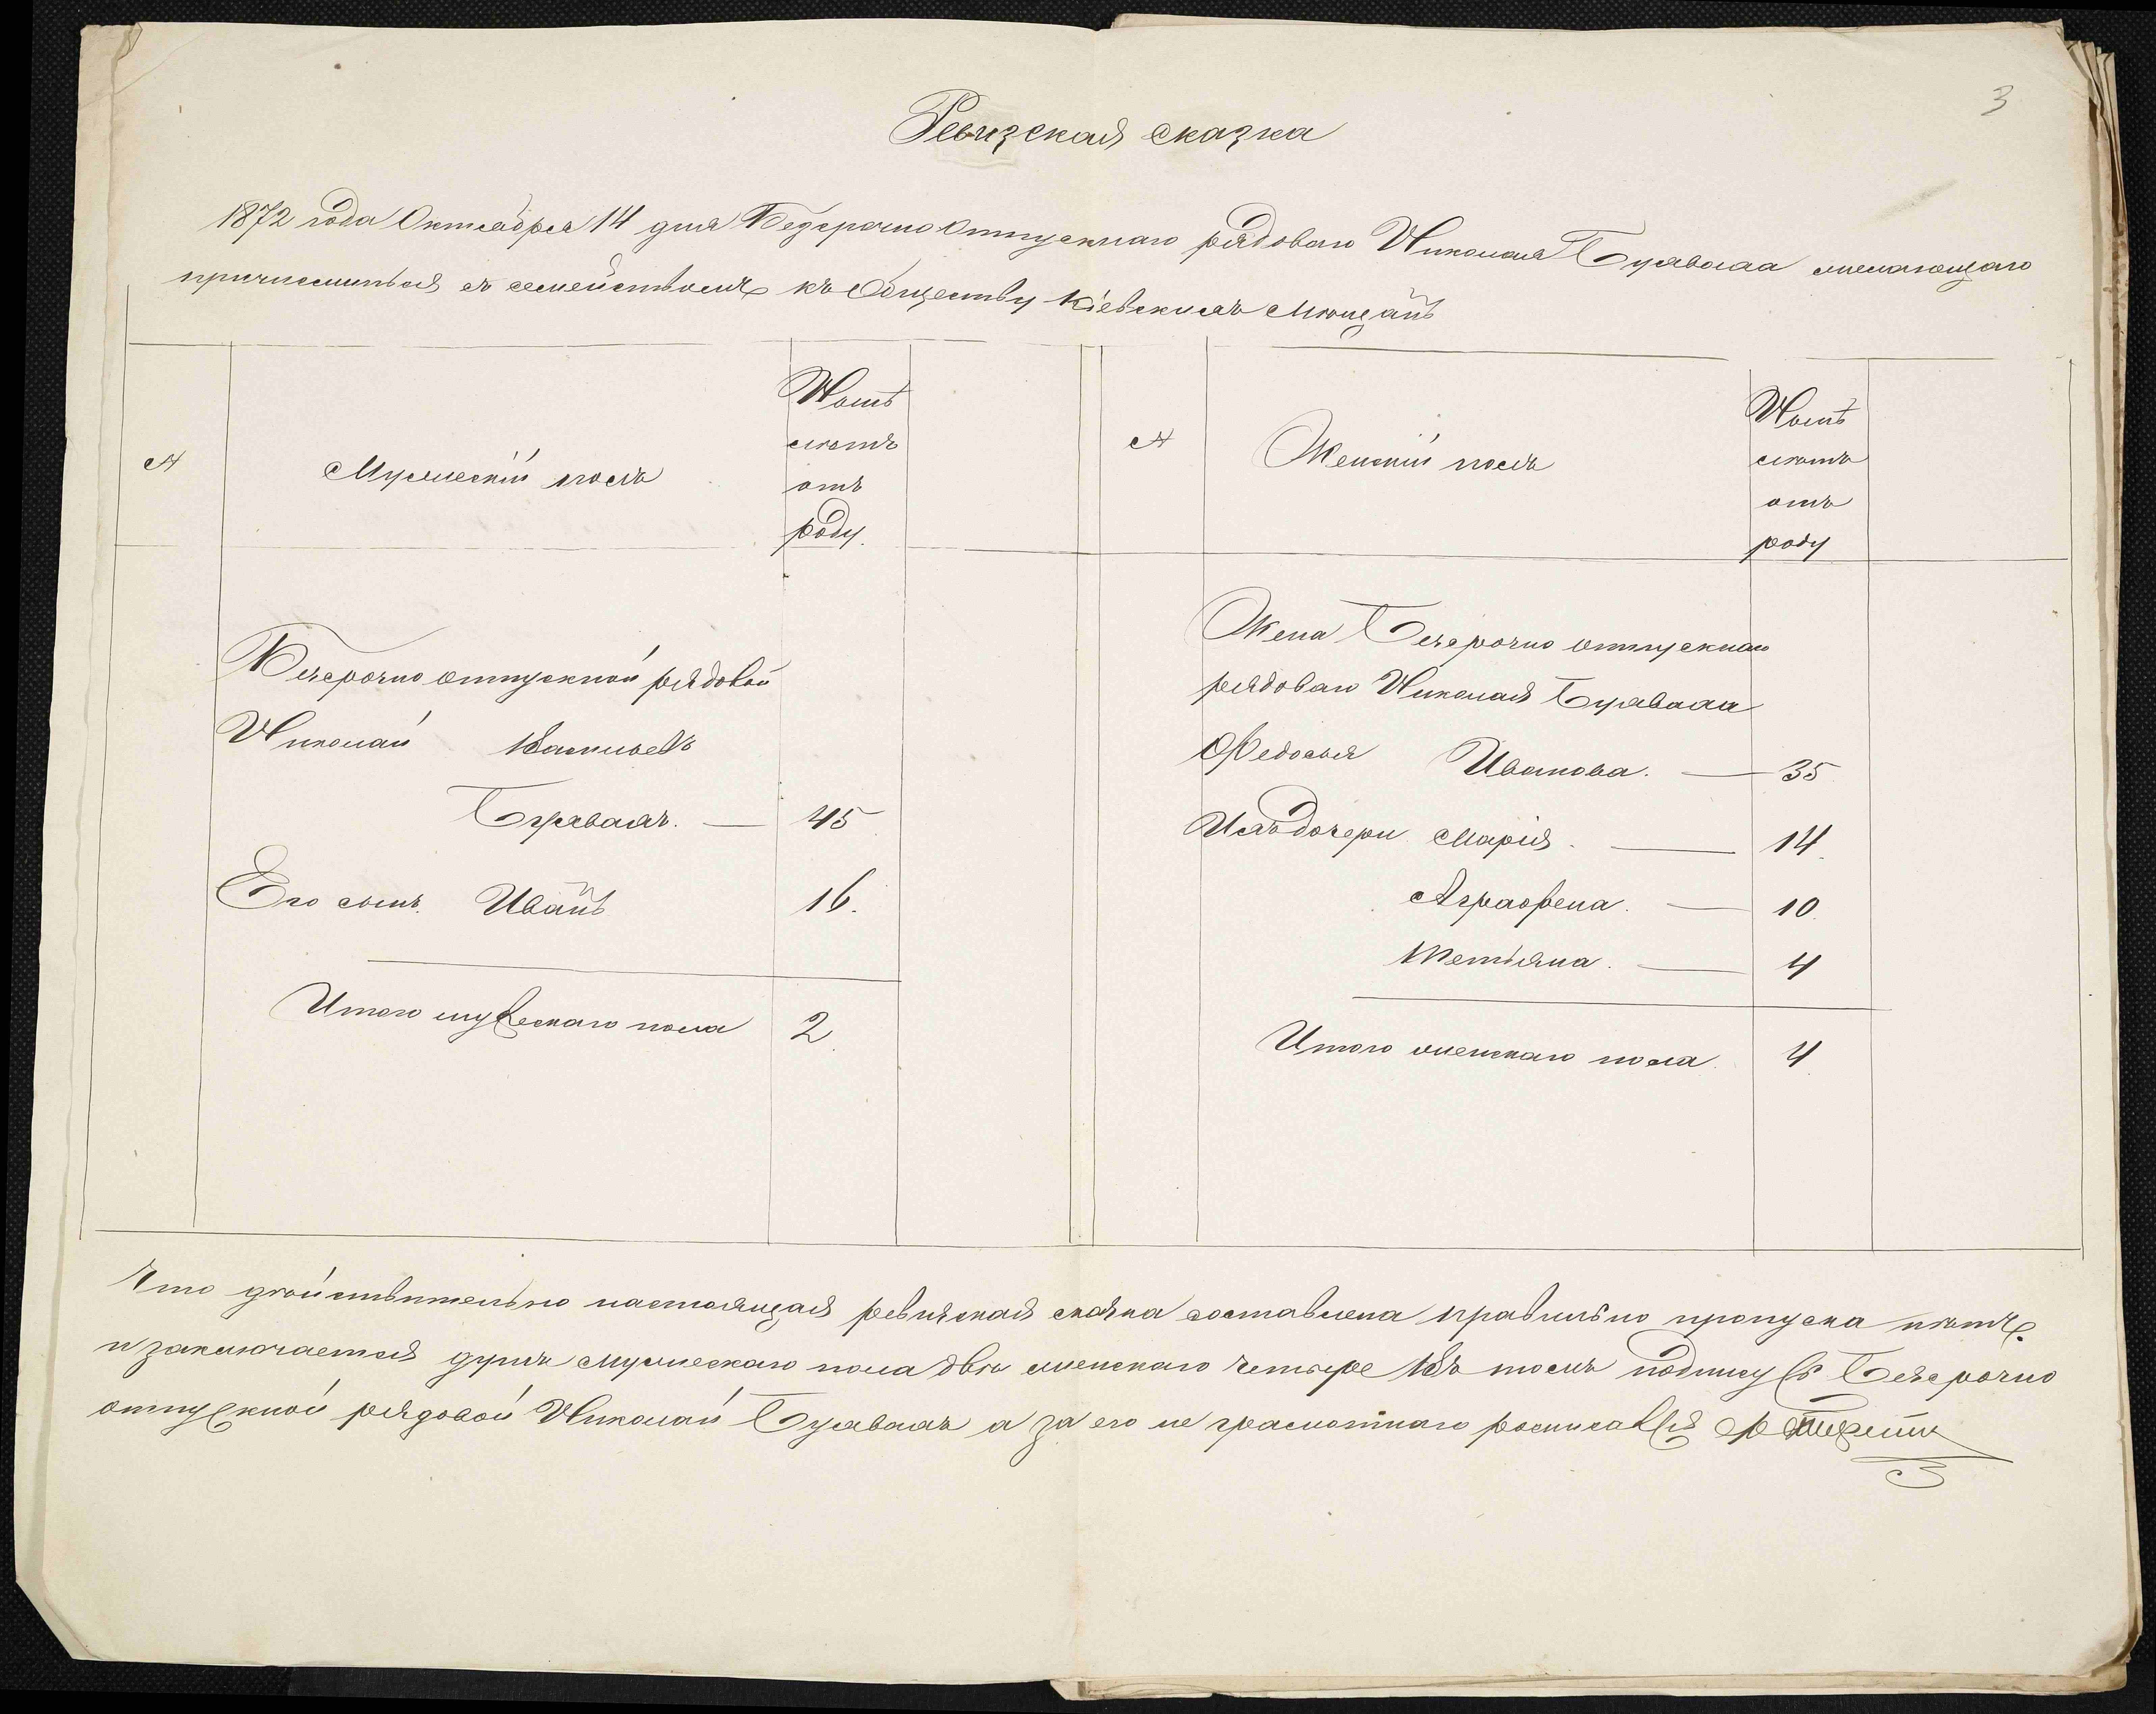 3
Ревизская сказка
1872 года Октября 14 дня Безсрочно Отпускнаго рядоваго Николая желающаго
причислиться съ семействомъ къ обществу Кіевскихъ Мѣщанъ
№
Мужескій полъ
Нынѣ
лѣтъ
отъ
роду.
№
Женскій полъ
Нынѣ
лѣтъ
отъ
роду
Безсрочно отпускной рядовой
Николай Васильевъ
45
Его сынъ. Иванъ 16.
Итого мужескаго пола 2
Жена Безсрочно отпускнаго
рядоваго Николая
Федосья Иванова. — 35
Ихъ дочери Марія. — 14
Аграфена. — 10
Тетьяна. — 4
Итого женскаго пола 4
Что дѣйствительно настоящая ревизская сказка составлена правильно пропуска нѣтъ
и заключается душъ мужескаго пола двѣ женскаго четыре Въ томъ подпису Безсрочно
отпускной рядовой Николай а за его не грамотнаго росписался